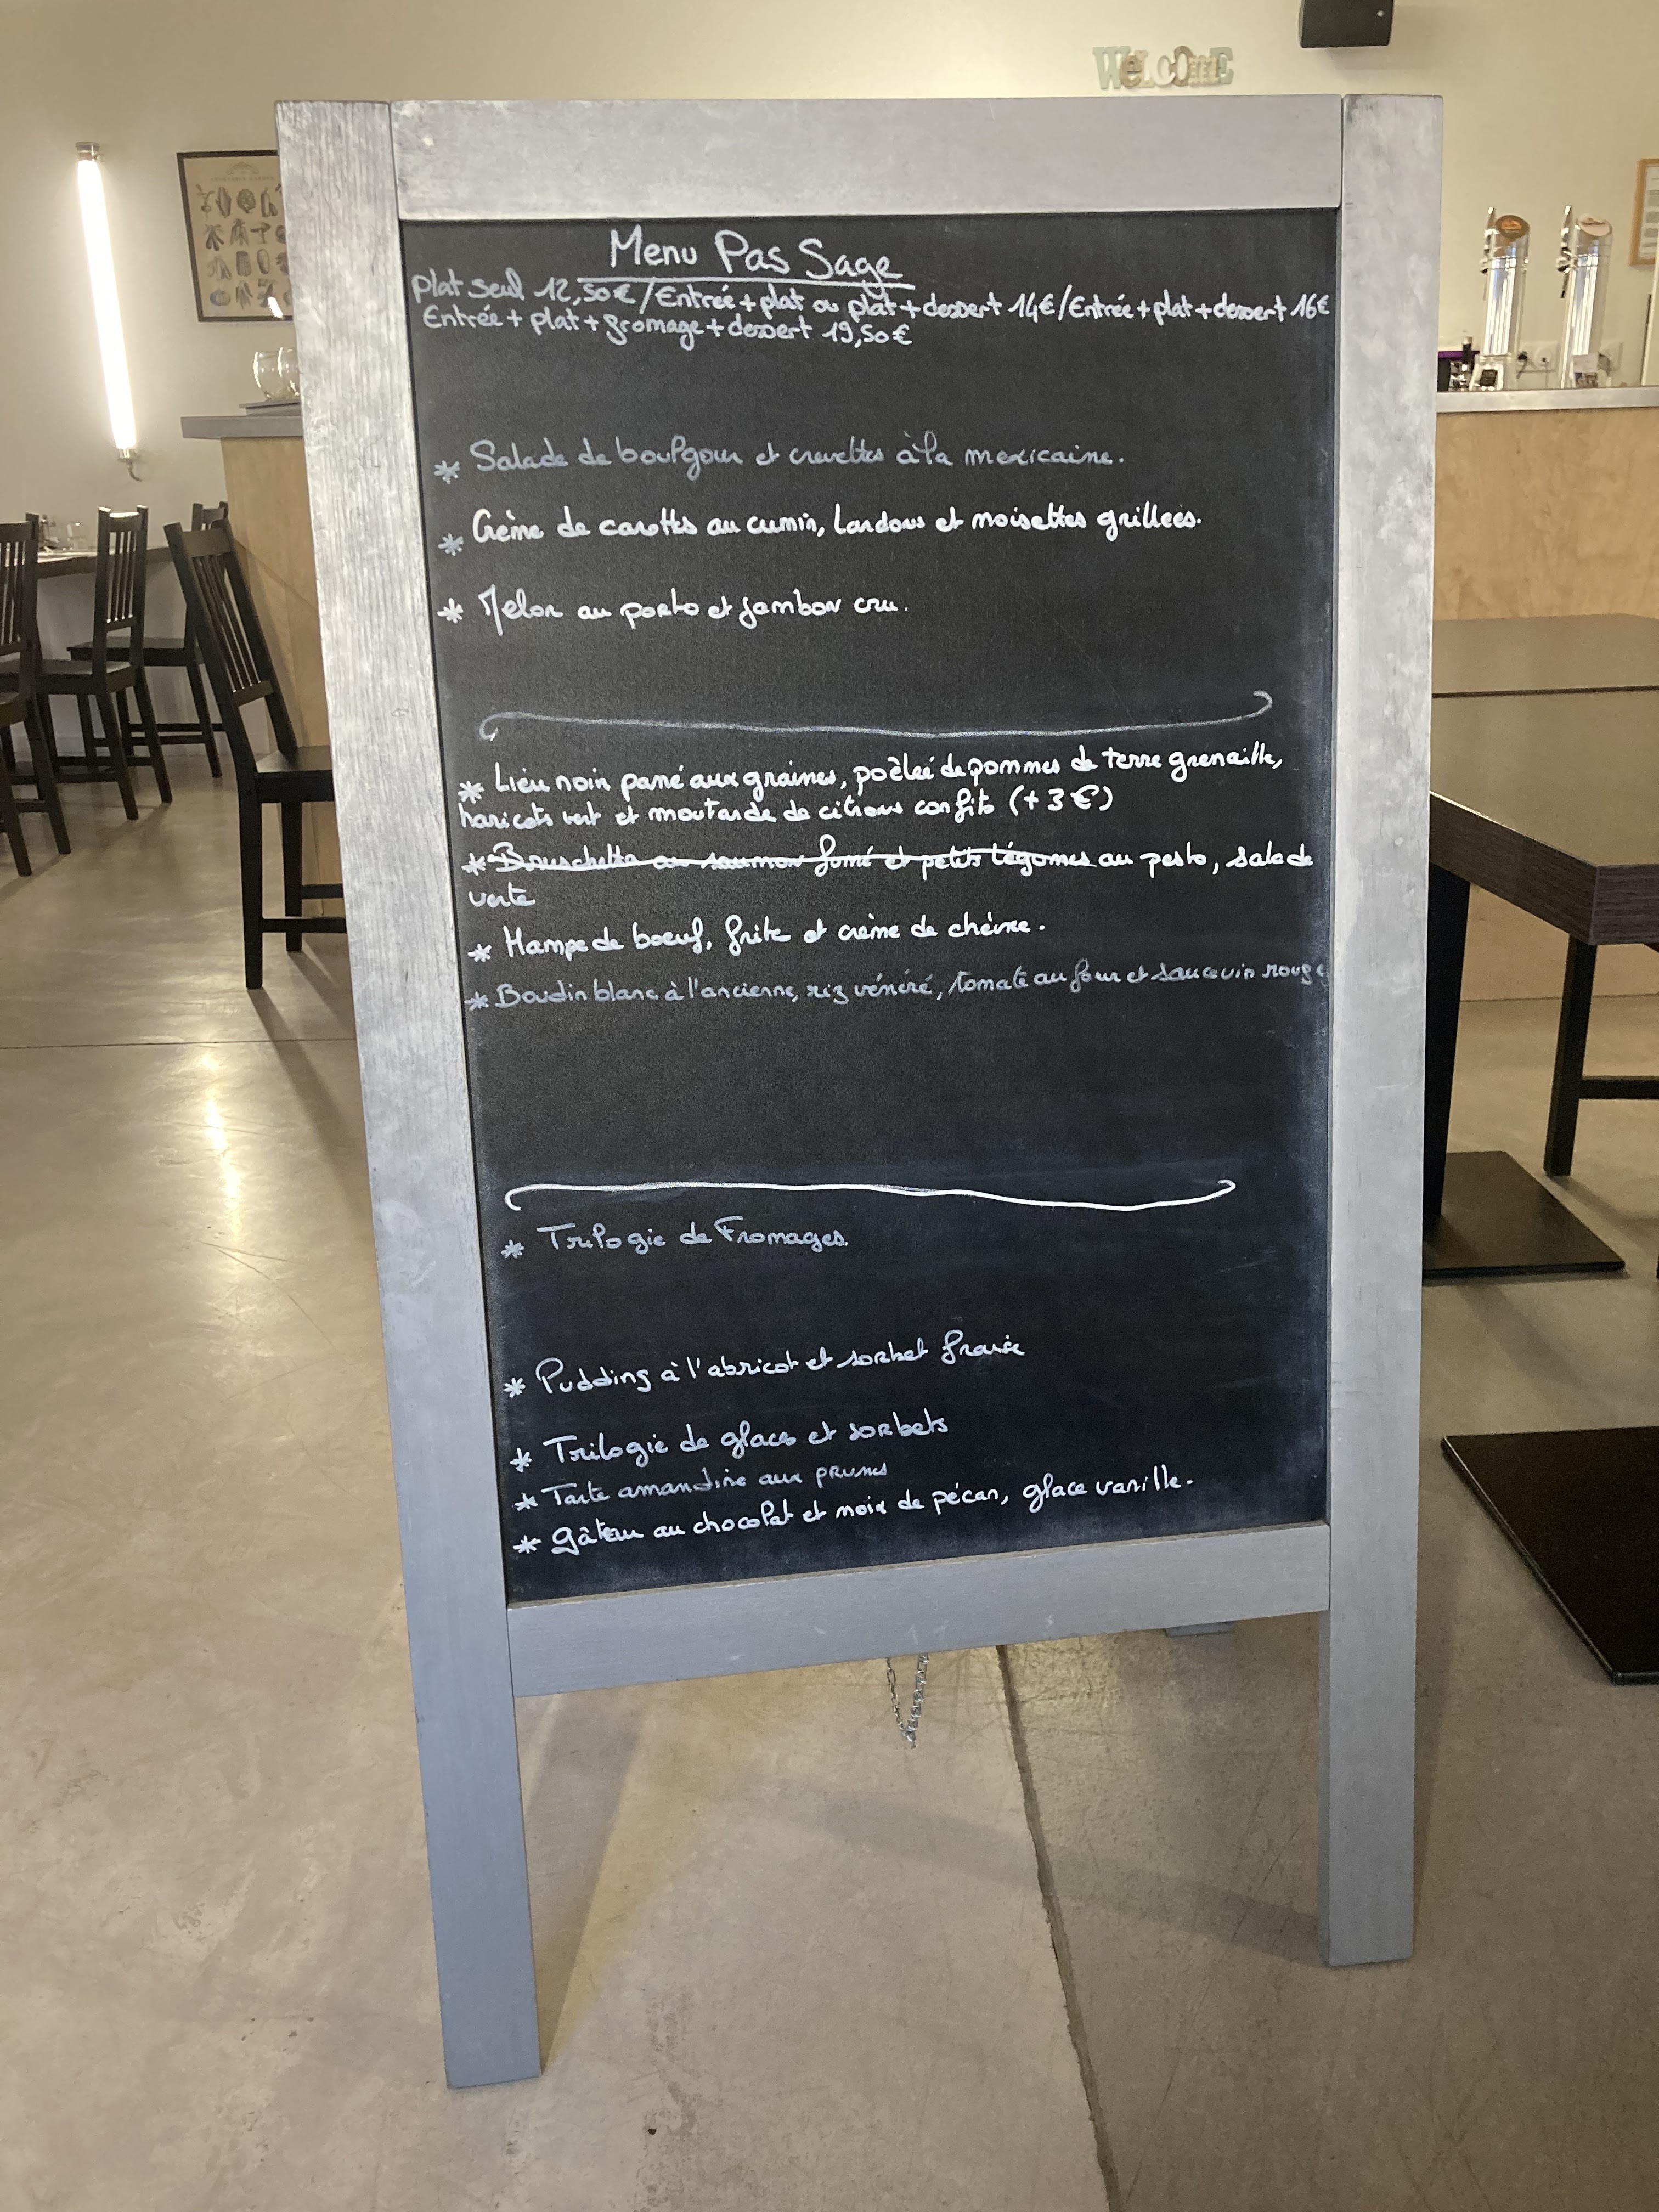 WELCOME
Menu Pas Sage
plat seul 12,50€/Entrée+plat ou plat+dessert 14€/Entrée+plat+dessert 16€
Entrée+plat+fromage+dessert 19,50€
* Salade de boulgour et crevettes à la mexicaine.
* Crème de carottes au cumin, lardons et noisettes grillées.
* Melon au porto et jambon cru.
* Lieu noir pané aux graines, poêlée de pommes de terre grenaille,
haricots vert et moutarde de citrons confits (+3€)
* Bruschetta au saumon fumé et petits légumes au pesto, salade
verte
* Hampe de boeuf, frite et crème de chèvre.
* Boudin blanc à l'ancienne, riz vénéré, tomate au four et sauce vin rouge
* Trilogie de Fromages.
* Pudding à l'abricot et sorbet fraise
* Trilogie de glaces et sorbets
* Tarte amandine aux prunes
* Gâteau au chocolat et noix de pécan, glace vanille.